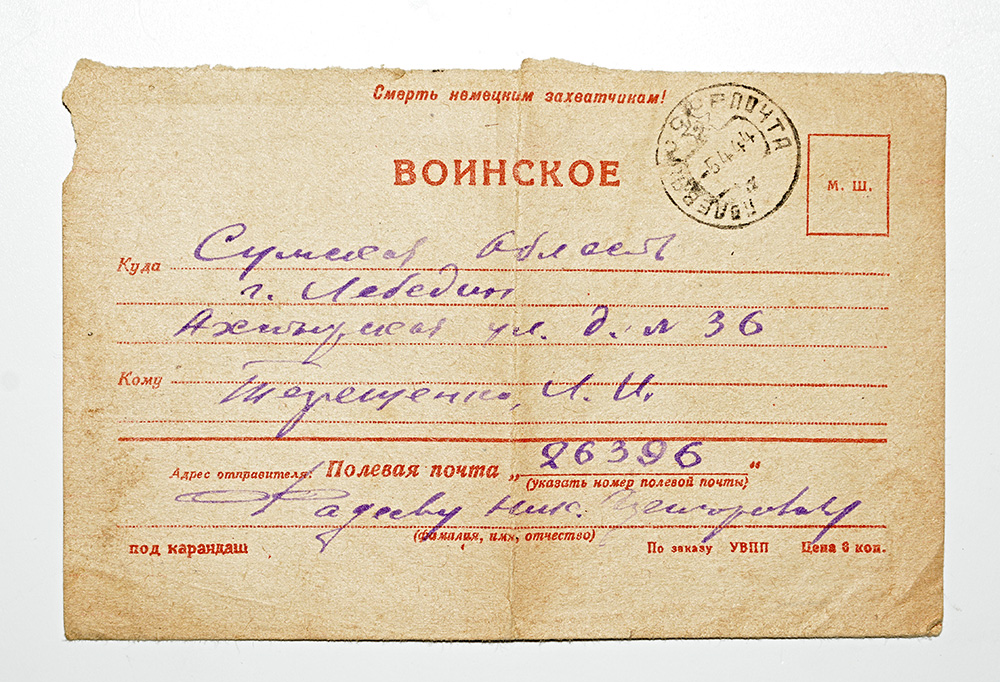 Смерть немецким захватчикам!
ПОЛЕВАЯ ПОЧТА
-5.4.44
ВОИНСКОЕ
М. Ш.
Куда Сумская область
г. Лебедин
Ахтырская ул. д. № 36
Кому Терещенко, Л. И.
Адрес отправителя: Полевая почта „26396“
(указать номер полевой почты)
Фадееву Ник.
(фамилия, имя, отчество)
под карандаш По заказу УВПП Цена 6 коп.